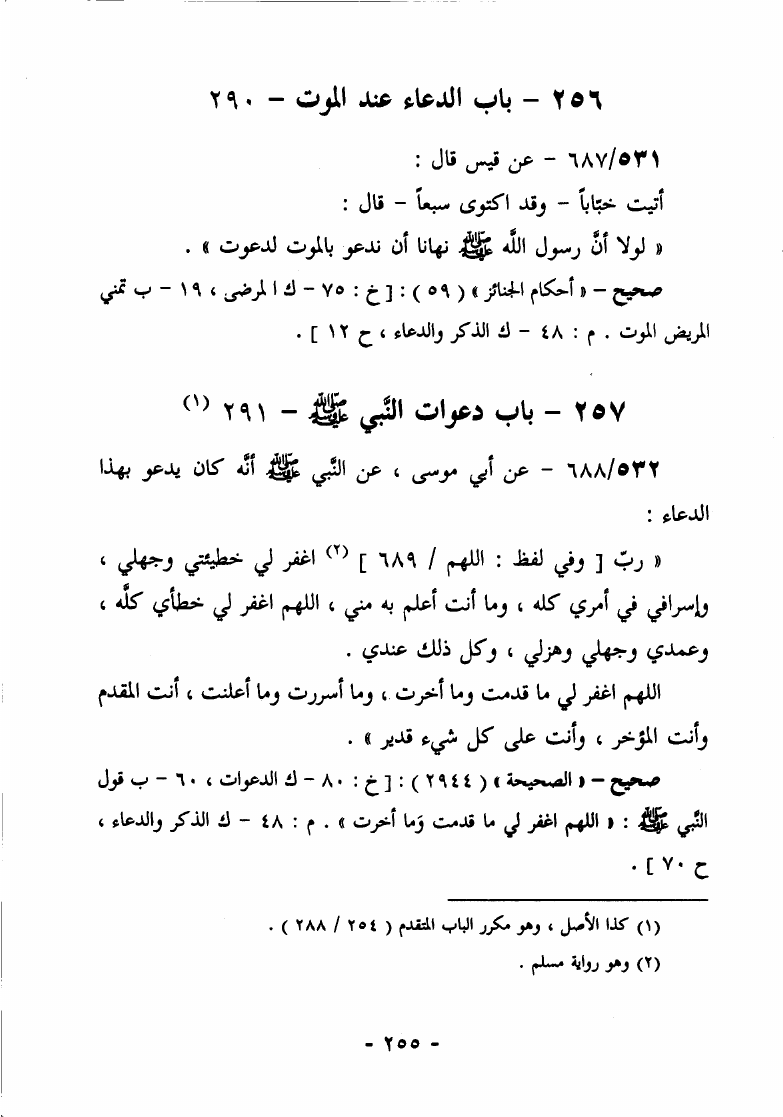 ٢٥٦ – باب الدعاء عند الموت – ٢٩٠
٦٨٧/٥٣١ – عن قيس قال :
أتيت خبّاباً – وقد اكتوى سبعاً – قال :
« لولا أنَّ رسول الله ﷺ نهانا أن ندعو بالموت لدعوت » .
صحيح – « أحكام الجنائز » ( ٥٩ ) : [ خ : ٧٥ – ك المرضى ، ١٩ – ب تمني
المريض الموت . م : ٤٨ – ك الذكر والدعاء ، ح ١٢ ] .
٢٥٧ – باب دعوات النَّبي ﷺ – ٢٩١ (١)
٦٨٨/٥٣٢ – عن أبي موسى ، عن النَّبي ﷺ أنَّه كان يدعو بهذا
الدعاء :
« ربّ [ وفي لفظ : اللهم / ٦٨٩ ] (٢) اغفر لي خطيئتي وجهلي ،
وإسرافي في أمري كله ، وما أنت أعلم به مني ، اللهم اغفر لي خطأي كلَّه ،
وعمدي وجهلي وهزلي ، وكل ذلك عندي .
اللهم اغفر لي ما قدمت وما أخرت ، وما أسررت وما أعلنت ، أنت المقدم
وأنت المؤخر ، وأنت على كل شيء قدير » .
صحيح – « الصحيحة » ( ٢٩٤٤ ) : [ خ : ٨٠ – ك الدعوات ، ٦٠ – ب قول
النَّبي ﷺ : « اللهم اغفر لي ما قدمت وَما أخرت » . م : ٤٨ – ك الذكر والدعاء ،
ح ٧٠ ] .
(١) كذا الأصل ، وهو مكرر الباب المتقدم ( ٢٥٤ / ٢٨٨ ) .
(٢) وهو رواية مسلم .
- ٢٥٥ -